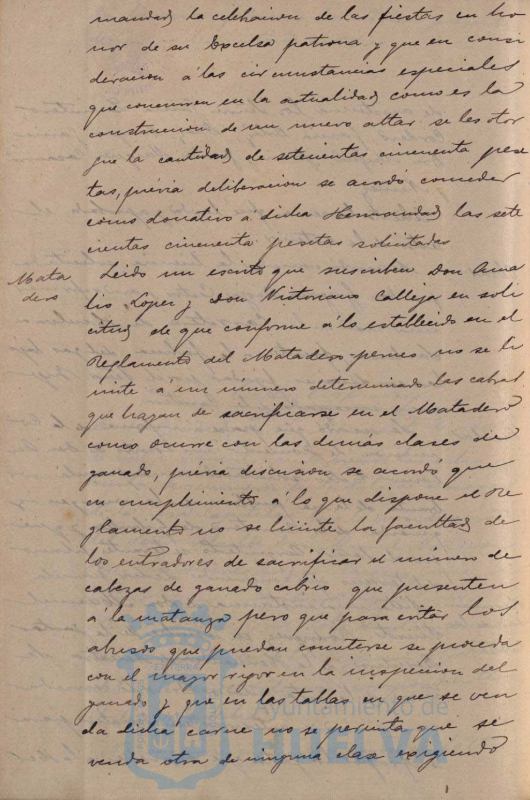 mandad la celebracion de las fiestas en ho
nor de su Excelsa patrona y que en consi
deracion á las circunstancias especiales
que concurren en la actualidad como es la
construccion de un nuevo altar se les otor
gue la cantidad de setecientas cincuenta pese
tas, prévia deliberacion se acordó conceder
como donativo á dicha Hermandad las sete
cientas cincuenta pesetas solicitadas
Mata
dero
Leido un escrito que suscriben Don Ama
lio Lopez y Don Victoriano Calleja en soli
citud de que conforme á lo establecido en el
Reglamento del Matadero no se li
mite á un número determinado las cabras
que hayan de sacrificarse en el Matadero
como ocurre con las demás clases de
ganado, prévia discusion se acordó que
en cumplimiento á lo que dispone el Re
glamento no se limite la facultad de
los entradores de sacrificar el número de
cabezas de ganado cabrio que presenten
á la matanza pero que para evitar los
abusos que puedan cometerse se proceda
con el mayor rigor en la inspeccion del
ganado y que en las tablas en que se ven
da dicha carne no se permita que se
venda otra de ninguna clase exigiendo
Ayuntamiento de
HUELVA